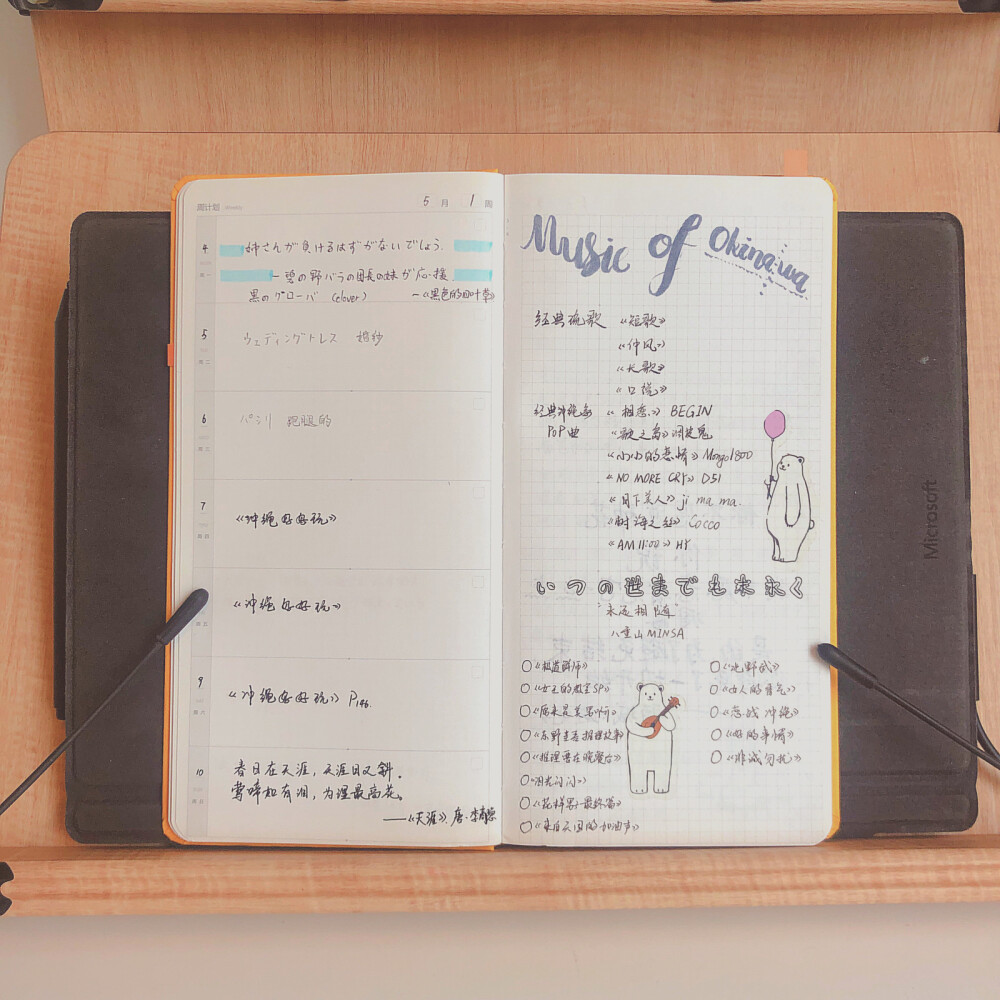 周计划 weekly 5 月 1 周
4
周一
姉さんが負けるはずがないでしょう.
—碧の野バラの団長の妹が応援
黒のグローバ (clover) —《黑色的四叶草》
5
周二
ウェディングトレス 婚纱
6
周三
7
周四
《冲绳好好玩》
周五
《冲绳好好玩》
9
周六
《冲绳好好玩》P146.
10
周日
春日在天涯，天涯日又斜.
莺啼如有泪，为湿最高花。
——《天涯》唐·李商隐
Music of Okinawa
经典琉歌 《短歌》
《仲风》
《长歌》
《口说》
经典冲绳系 《相恋》 BEGIN
POP曲 《歌之岛》
《小小的恋情》Mongol800
《NO MORE CRY》 D51
《月下美人》 ji ma ma.
《树海之丝》 Cocco
《AM 11:00》 HY
いつの世までも末永く
"永远相随"
八重山 MINSA
《女王的教室SP》
《推理要在晚餐后》
《花样男子最终篇》
《来自天国的加油声》
《女人的勇气》
《恋战冲绳》
《非诚勿扰》
Microsoft